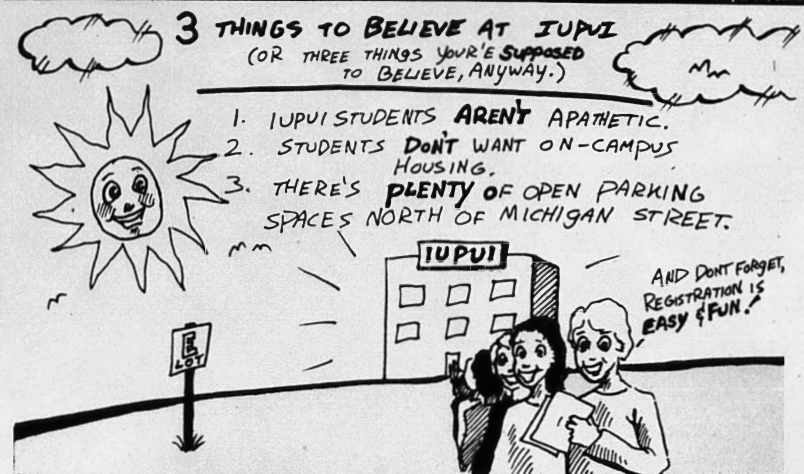 3 THINGS TO BELIEVE AT IUPUI
(OR THREE THINGS YOUR'E SUPPOSED
TO BELIEVE, ANYWAY.)
1. IUPUI STUDENTS AREN'T APATHETIC.
2. STUDENTS DON'T WANT ON-CAMPUS
HOUSING.
3. THERE'S PLENTY OF OPEN PARKING
SPACES NORTH OF MICHIGAN STREET.
IUPUI
AND DONT FORGET,
REGISTRATION IS
EASY & FUN!
E
LOT